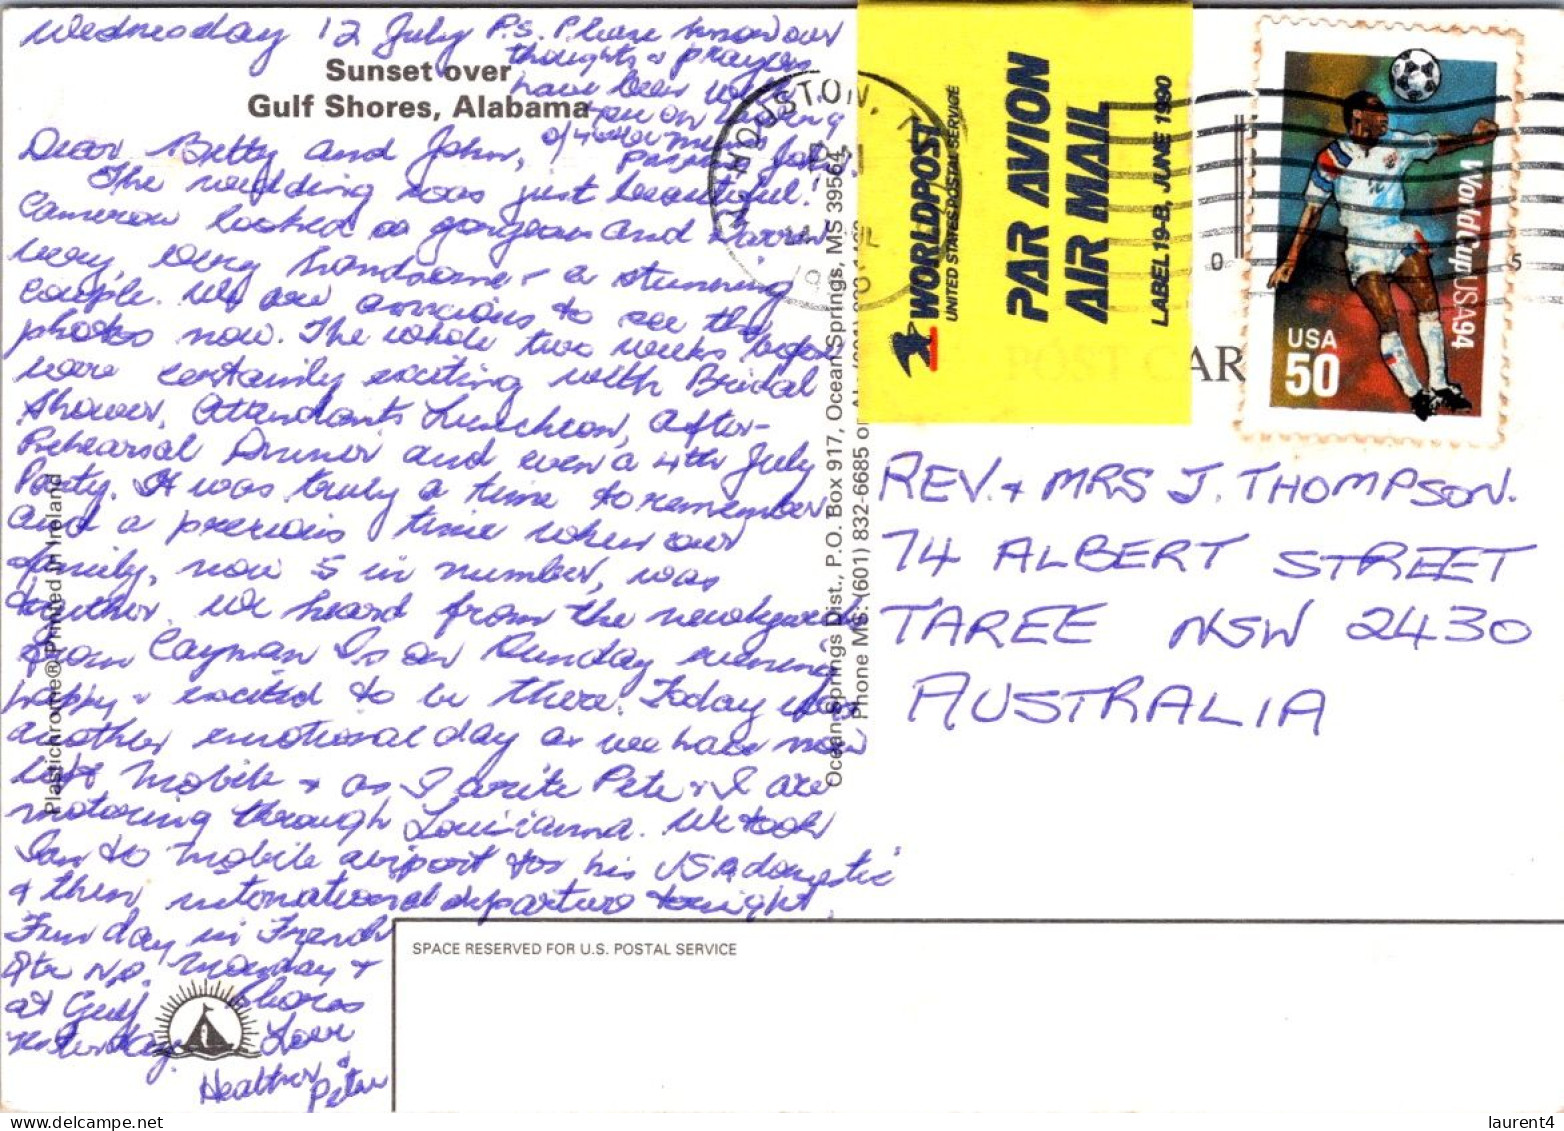 Wednesday 12 July
P.S. Please know our
thoughts & prayers
have been with
you on
Sunset over
Gulf Shores, Alabama
Dear Betty and John,
The wedding was just beautiful!
Cameron looked so gorgeous and Darrin
very, very handsome - a stunning
couple. We are anxious to see the
photos now. The whole two weeks before
were certainly exciting with Bridal
Shower, Attendants Luncheon, After-
Rehearsal Dinner and even a 4th July
Party. It was truly a time to remember
and a precious time when our
family, now 5 in number, was
together. We heard from the newlyweds
from Cayman Is on Sunday evening
happy & excited to be there. Today was
another emotional day as we have now
left Mobile & as I write Peter & I are
motoring through Louisianna. We took
Ian to Mobile airport for his USA domestic
& then international departure tonight.
Fun day in French
Qtr N.O. Monday &
at Gulf Shores
yesterday.
Love
Heather &
Peter
Plastichrome® Printed in Ireland
Ocean Springs Dist., P.O. Box 917, Ocean Springs, MS 39564
Phone MS: (601) 832-6685 or
HOUSTON,
WORLDPOST
UNITED STATES POSTAL SERVICE
PAR AVION
AIR MAIL
LABEL 19-B, JUNE 1990
POST CAR
0 5
World Cup USA 94
USA
50
REV. & MRS J. THOMPSON.
74 ALBERT STREET
TAREE NSW 2430
AUSTRALIA
SPACE RESERVED FOR U.S. POSTAL SERVICE
laurent4